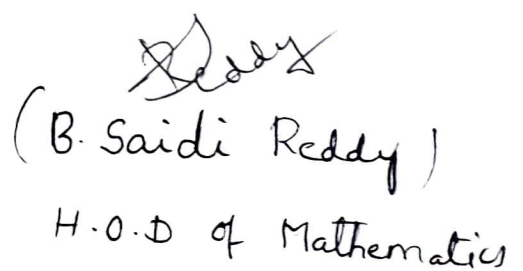 Reddy
(B. Saidi Reddy)
H.O.D of Mathematics